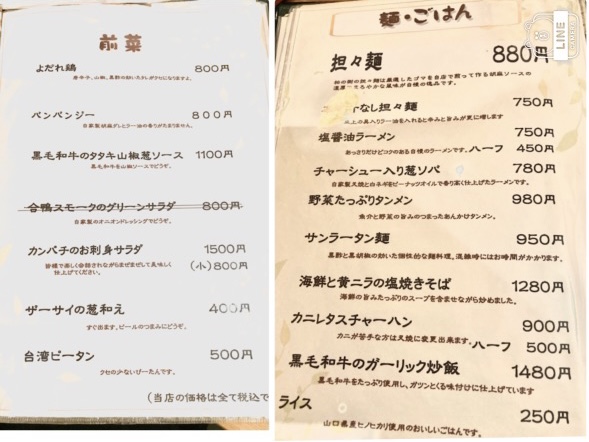 前菜
よだれ鶏 800円
バンバンジー 800円
自家製胡麻ダレとラー油の香りがたまりません。
黒毛和牛のタタキ山椒葱ソース 1100円
黒毛和牛を山椒ソースでどうぞ。
合鴨スモークのグリーンサラダ 800円
自家製のオニオンドレッシングでどうぞ。
カンパチのお刺身サラダ 1500円
皆様で楽しく会話されながらまぜまぜして美味しく (小)800円
仕上げてください。
ザーサイの葱和え 400円
すぐ出ます。ビールのつまみにどうぞ。
台湾ピータン 500円
クセの少ないぴーたんです。
(当店の価格は全て税込で
麺・ごはん
LINE
担々麺 880円
なし担々麺 750円
塩醤油ラーメン 750円
あっさりだけどコクのある自慢のラーメンです。 ハーフ 450円
チャーシュー入り葱ソバ 780円
自家製叉焼と白ネギをピーナッツオイルで香り高く仕上げたラーメンです。
野菜たっぷりタンメン 980円
魚介と野菜の旨みのつまったあんかけタンメン。
サンラータン麺 950円
黒酢と黒胡椒の効いた個性的な麺料理、混雑時にはお時間がかかります。
海鮮と黄ニラの塩焼きそば 1280円
海鮮の旨みたっぷりのスープを含ませながら炒めました。
カニレタスチャーハン 900円
カニが苦手な方は叉焼に変更出来ます。 ハーフ 500円
黒毛和牛のガーリック炒飯 1480円
黒毛和牛をたっぷり使用し、ガツンとくる味付けに仕上げています
ライス 250円
山口県産ヒノヒカリ使用のおいしいごはんです。